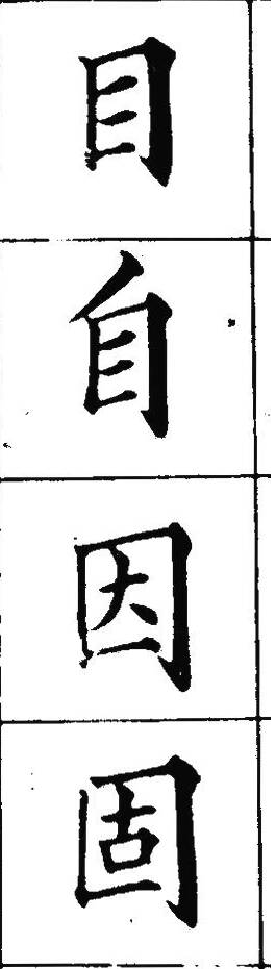 目
自
因
固